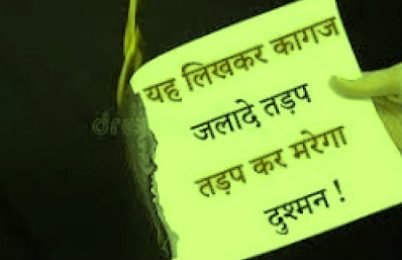 यह लिखकर कागज
जलादे तड़प
तड़प कर मरेगा
दुश्मन !